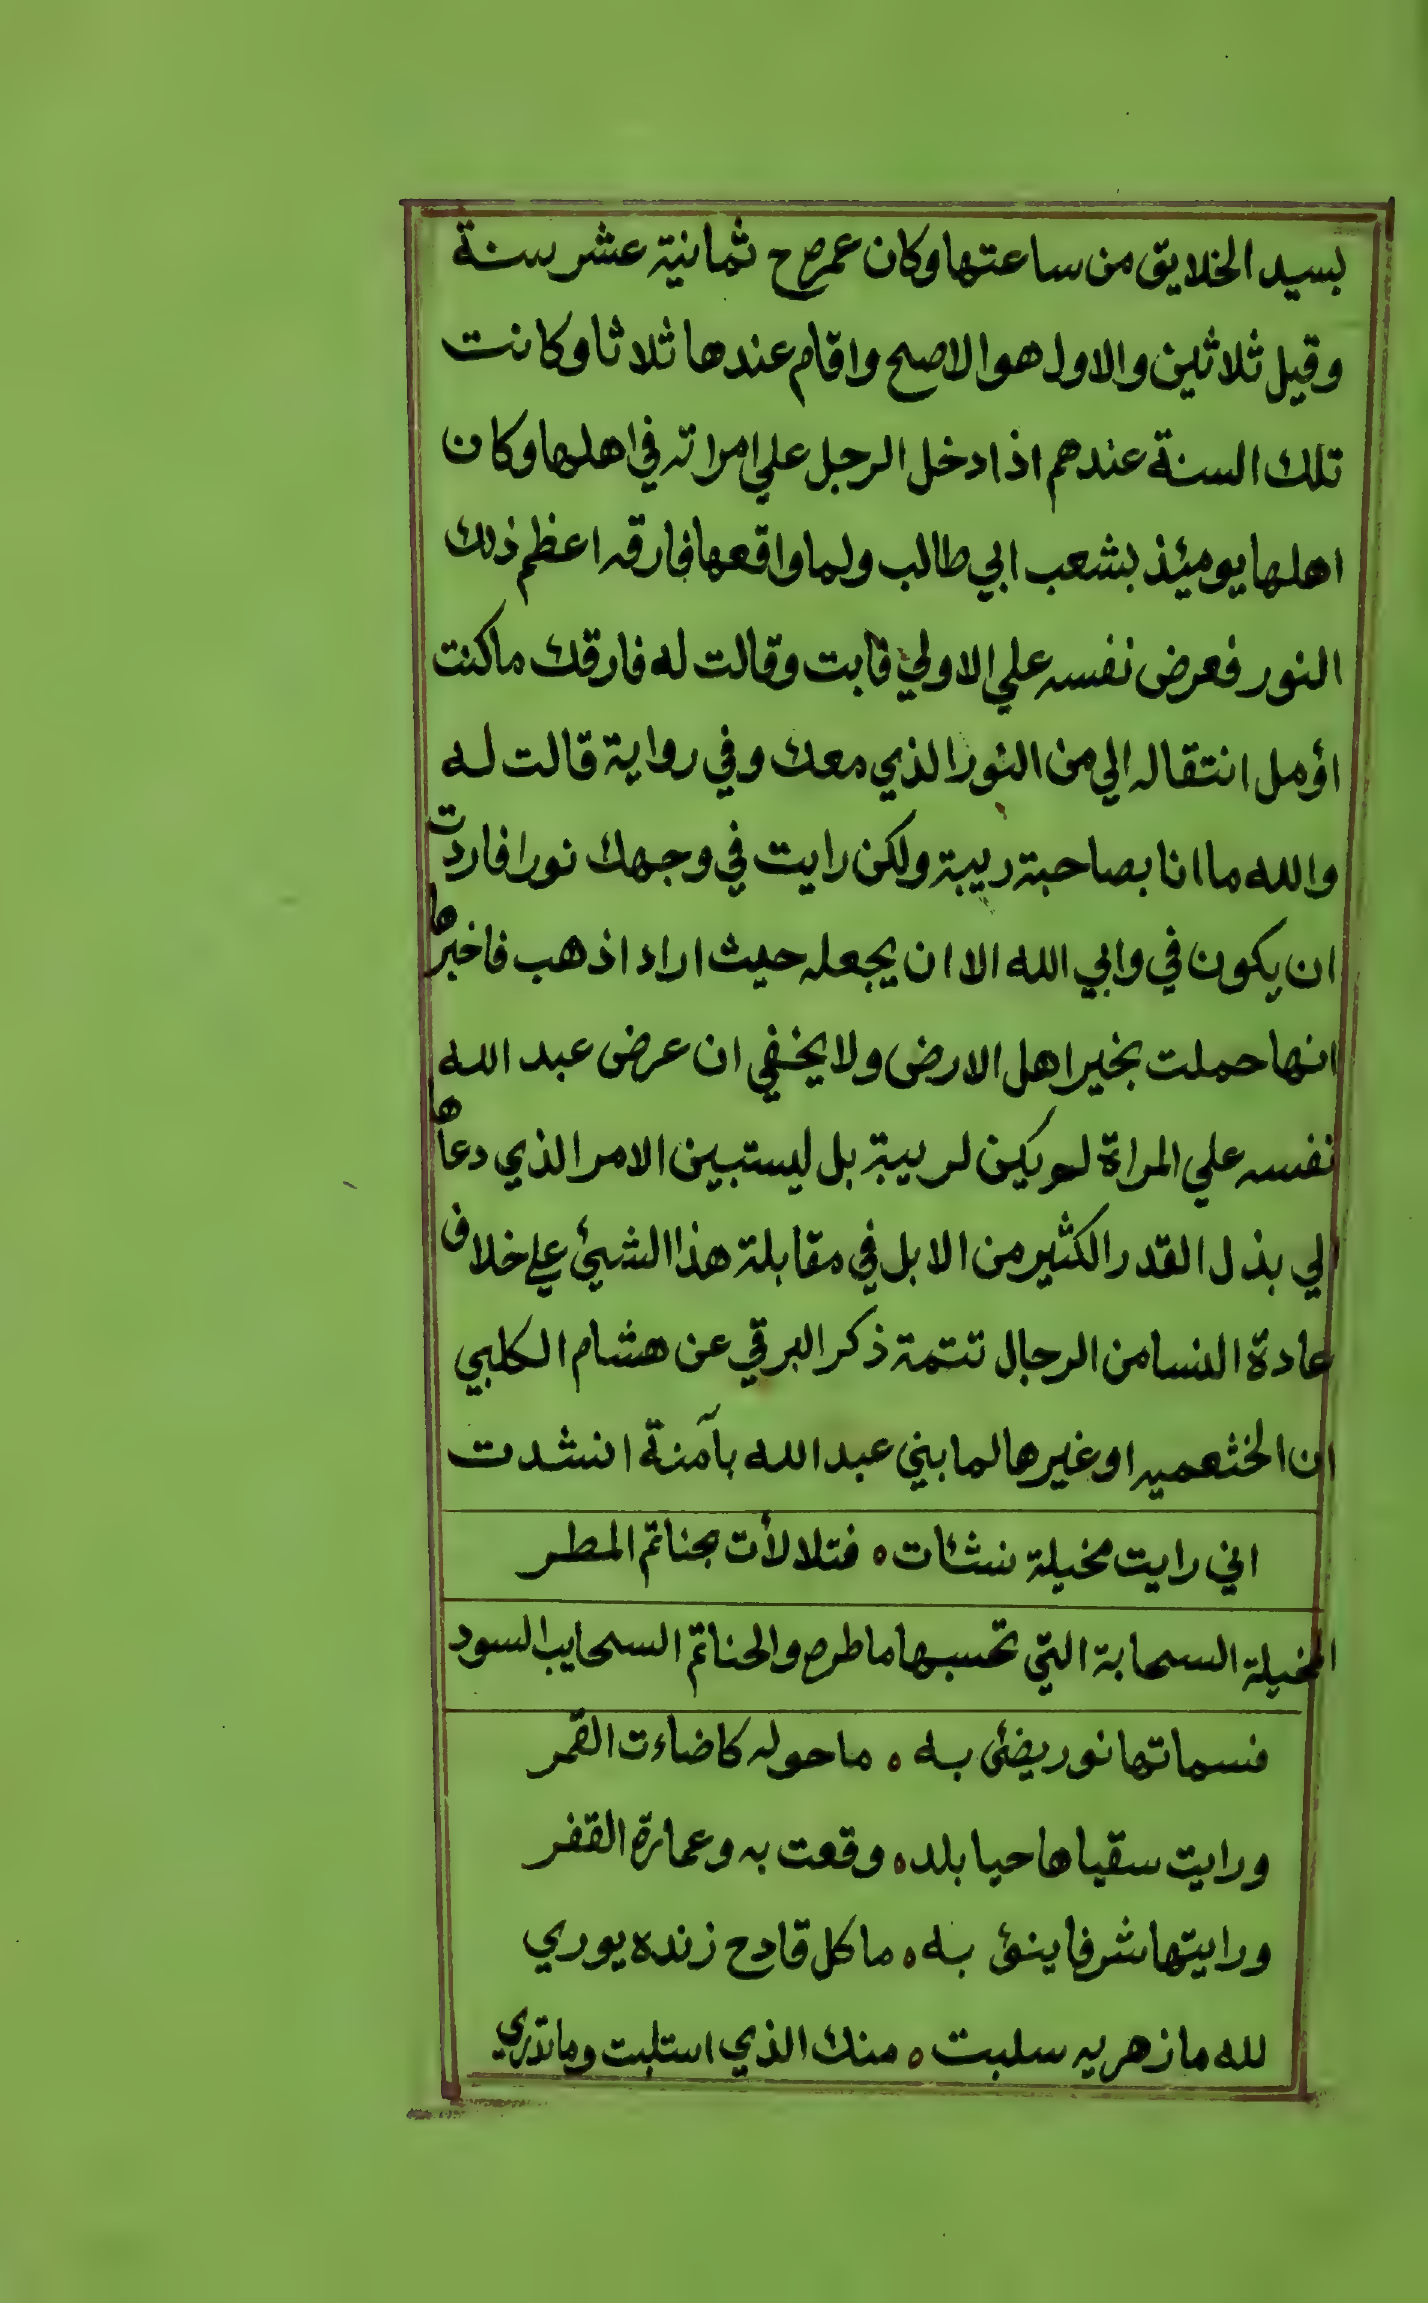 بسيد الخلايق من ساعتها وكان عمره ح ثمانية عشر سنة
وقيل ثلاثين والاول هو الاصح واقام عندها ثلاثا وكانت
تلك السنة عندهم اذا دخل الرجل علي امراته في اهلها وكان
اهلها يومئذ بشعب ابي طالب ولما واقعها فارقه اعظم ذلك
النور فعرض نفسه علي الاولي فابت وقالت له فارقك ما كنت
اؤمل انتقاله الي من النور الذي معك وفي رواية قالت له
والله ما انا بصاحبة ريبة ولكن رايت في وجهك نورا فاردت
ان يكون في وابي الله الا ان يجعله حيث اراد اذهب فاخبرها
انها حملت بخير اهل الارض ولا يخفي ان عرض عبد الله
نفسه علي المراة لم يكن لريبة بل ليستبين الامر الذي دعاها
لي بذل القدر الكثير من الابل في مقابلة هذا الشيئ علي خلاف
عادة النسا من الرجال تتمة ذكر البرقي عن هشام الكلبي
ان الخثعميه او غيرها لما بني عبد الله بآمنة انشدت
اني رايت مخيلة نشئات ه فتلالأت بحناتم المطر
المخيلة السحابة التي تحسبها ماطره والحناتم السحايب السود
فسماتها نور يضئ به ه ما حوله كاضاءت القمر
ورايت سقياها حيا بلد ه وقعت به وعمارة القفر
ورايتها شرفا ينؤ به ه ما كل قادح زنده يوري
لله ما زهريه سلبت ه منك الذي استلبت وما تدري